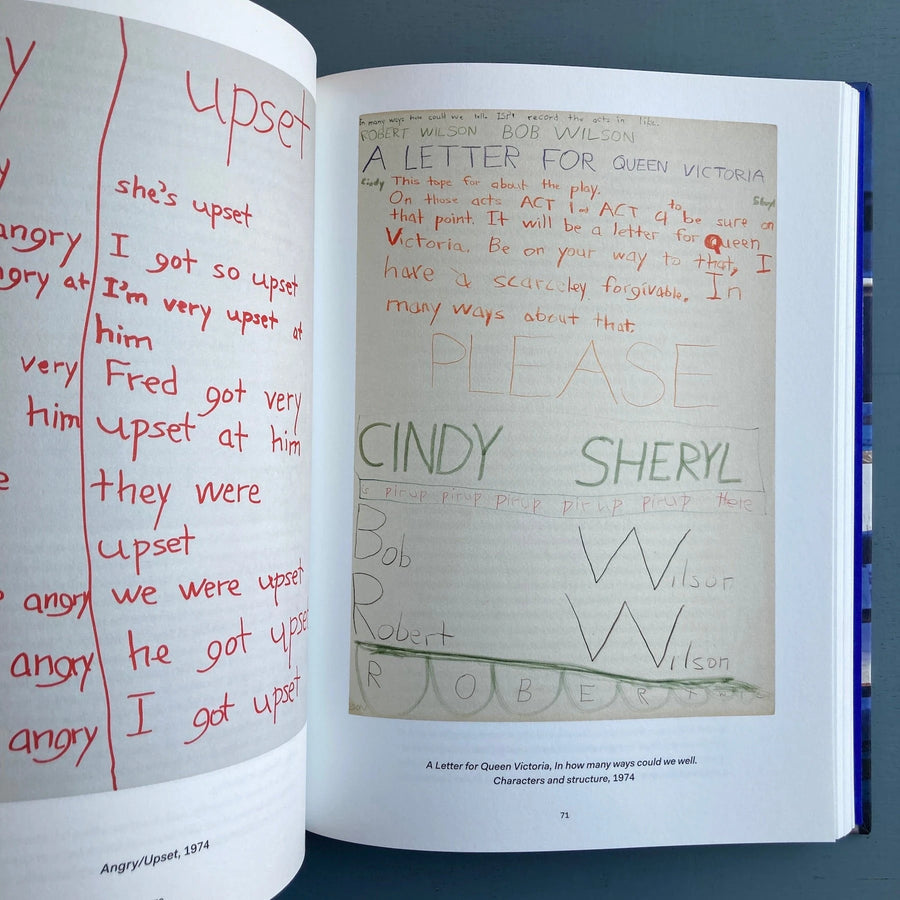 y
upset
y
she's upset
angry
I got so upset
ngry at
I'm very upset at
him
very
Fred got very
him
upset at him
e
they were
upset
angry
we were upset
angry
he got upse
angry
I got upset
Angry/Upset, 1974
In many ways how could we tell. Isn't record the acts in like.
ROBERT WILSON BOB WILSON
A LETTER FOR QUEEN VICTORIA
Cindy This tape for about the play.
On those acts ACT 1 and ACT 4 to be sure on Sheryl
that point. It will be a letter for Queen
Victoria. Be on your way to that, I
have a scarceley forgivable. In
many ways about that.
PLEASE
CINDY SHERYL
is pirup pirup pirup pirup pirup there
Bob Wilson
Robert Wilson
R O B E R T
A Letter for Queen Victoria, In how many ways could we well.
Characters and structure, 1974
71